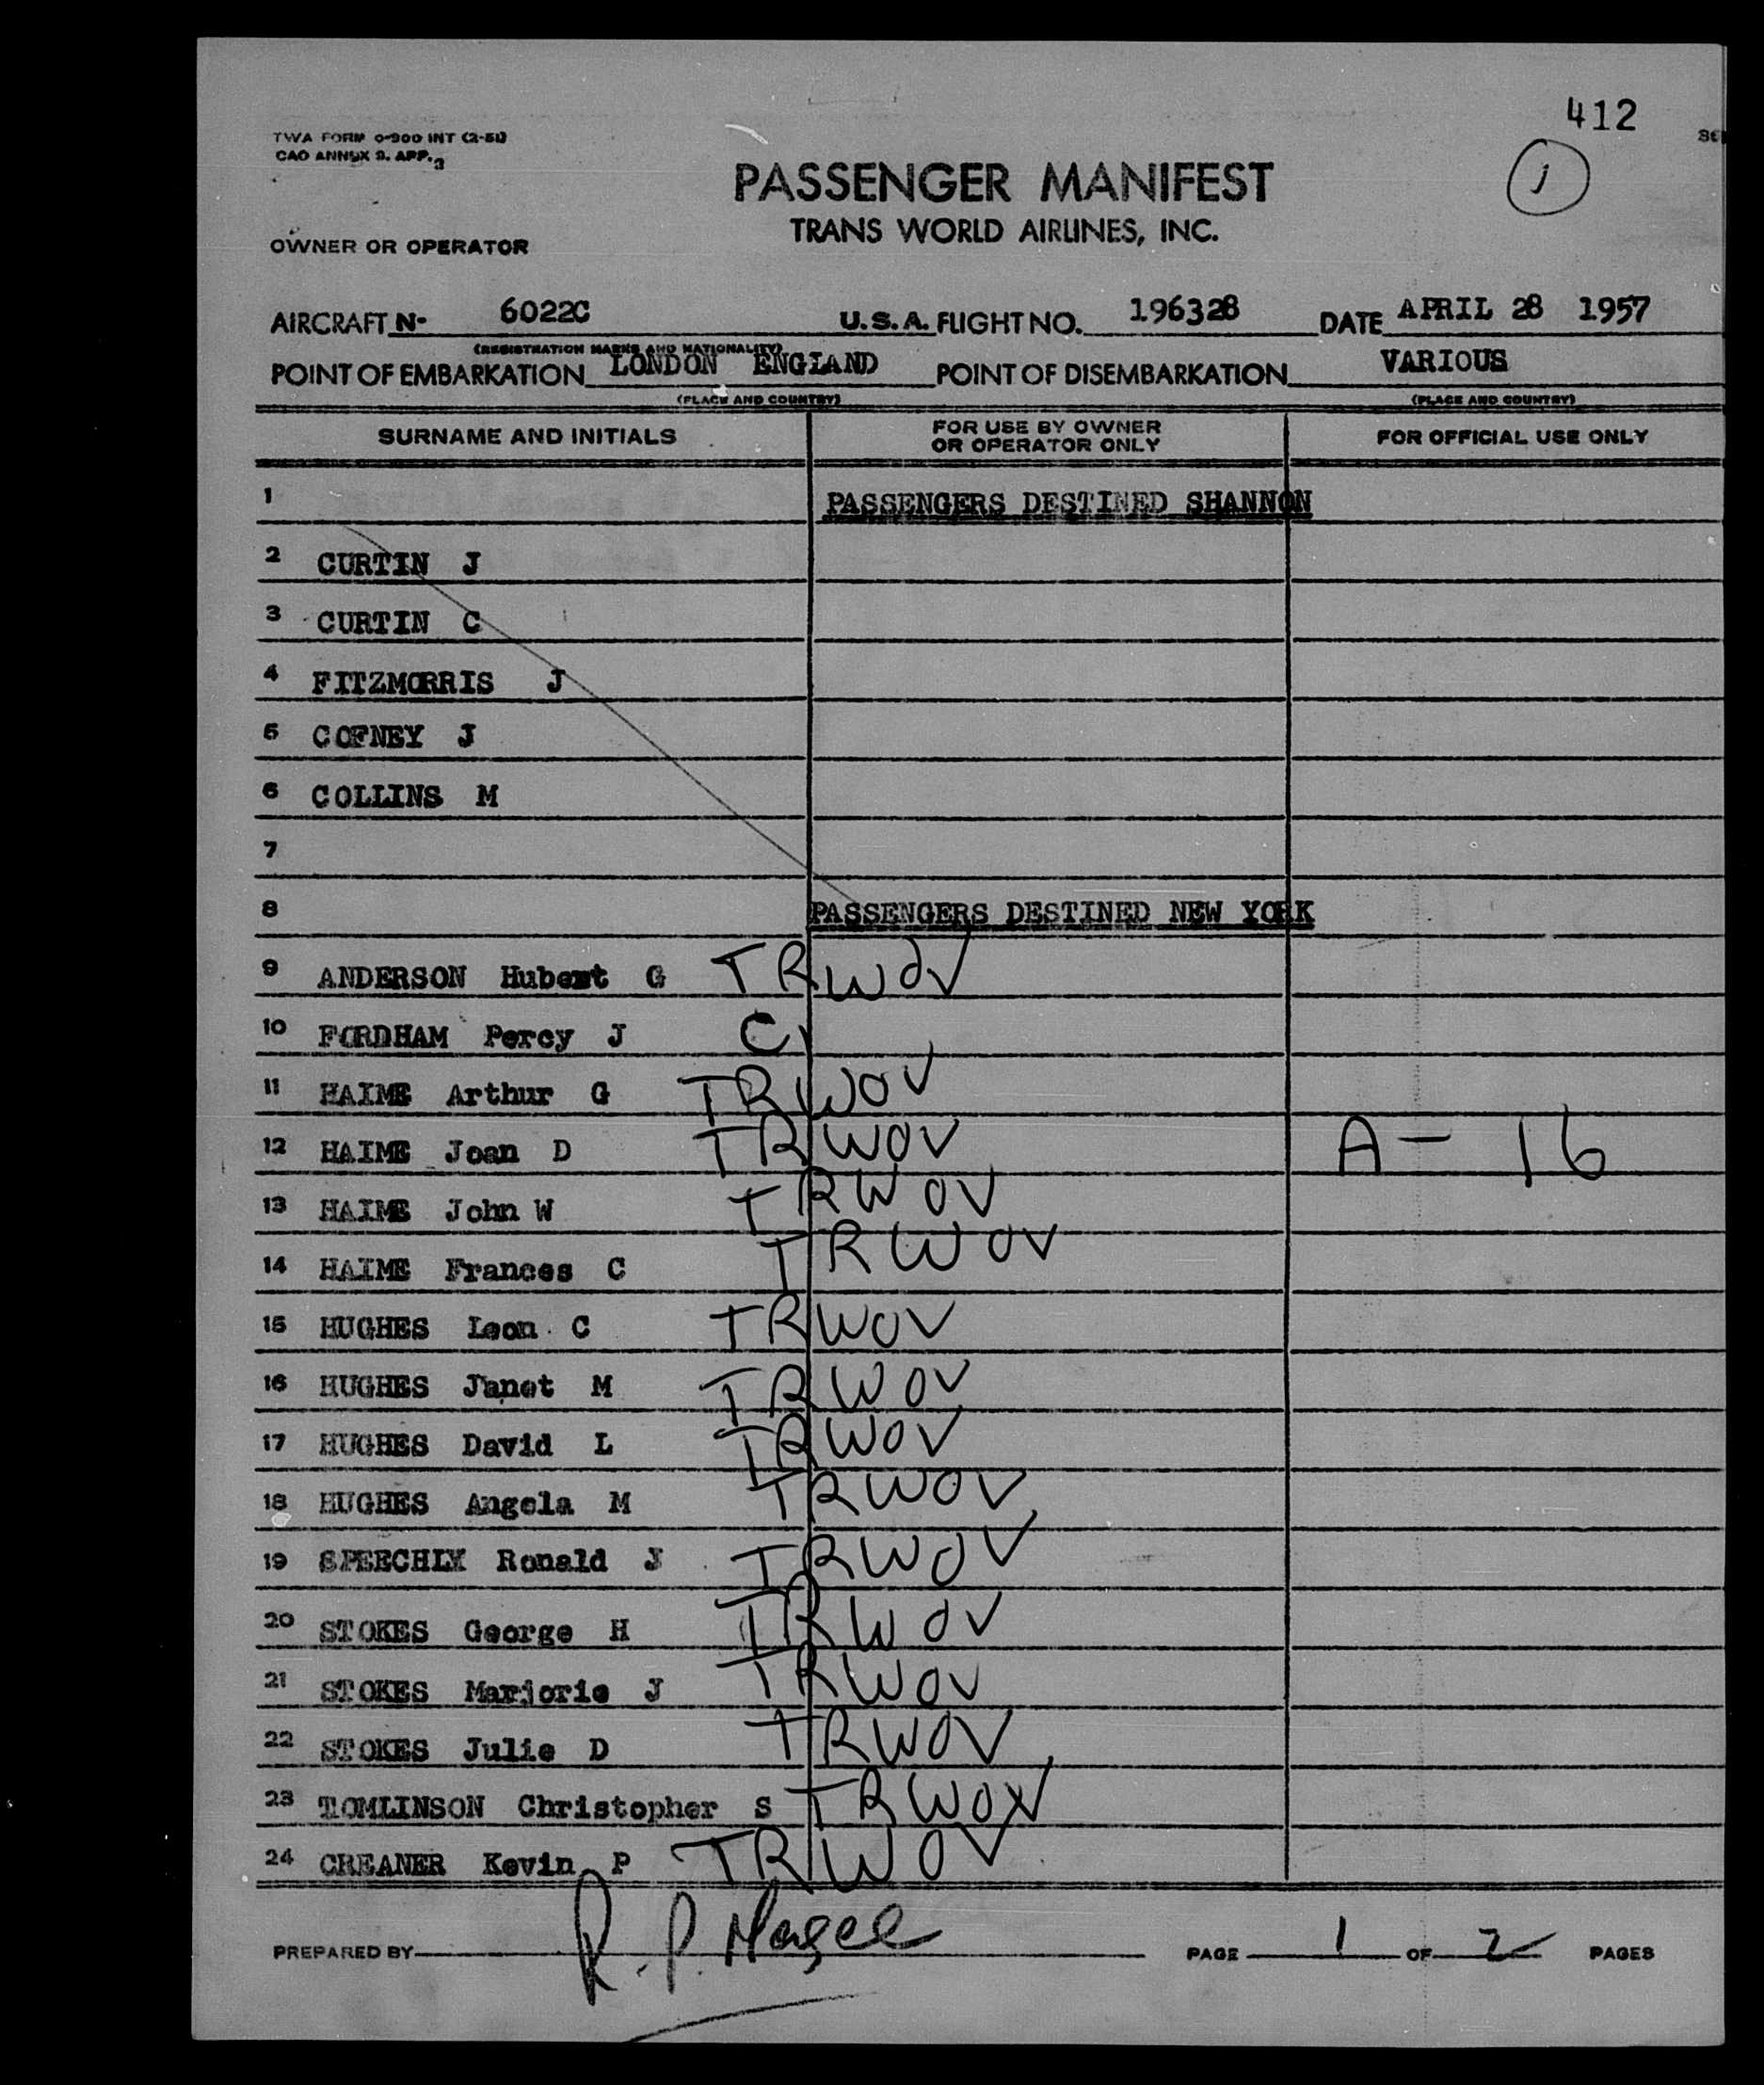 412
TWA FORM 0-900 INT (2-51)
CAO ANNEX 9. APP. 3
1
PASSENGER MANIFEST
TRANS WORLD AIRLINES, INC.
OWNER OR OPERATOR
AIRCRAFT N- 6022C U.S.A. FLIGHT NO. 196328 DATE APRIL 28 1957
(REGISTRATION MARKS AND NATIONALITY)
POINT OF EMBARKATION LONDON ENGLAND POINT OF DISEMBARKATION VARIOUS
(PLACE AND COUNTRY) (PLACE AND COUNTRY)
SURNAME AND INITIALS FOR USE BY OWNER OR OPERATOR ONLY FOR OFFICIAL USE ONLY
1 PASSENGERS DESTINED SHANNON
2 CURTIN J
3 CURTIN C
4 FITZMORRIS J
5 COFNEY J
6 COLLINS M
7
8 PASSENGERS DESTINED NEW YORK
9 ANDERSON Hubert G TRWOV
10 FORDHAM Percy J C
11 HAIME Arthur G TRWOV
12 HAIME Joan D TRWOV A-16
13 HAIME John W TRWOV
14 HAIME Frances C TRWOV
15 HUGHES Leon C TRWOV
16 HUGHES Janet M TRWOV
17 HUGHES David L TRWOV
18 HUGHES Angela M TRWOV
19 SPEECHLY Ronald J TRWOV
20 STOKES George H TRWOV
21 STOKES Marjorie J TRWOV
22 STOKES Julie D TRWOV
23 TOMLINSON Christopher S TRWOV
24 CREANER Kevin P TRWOV
PREPARED BY R. P. Magee PAGE 1 OF 2 PAGES